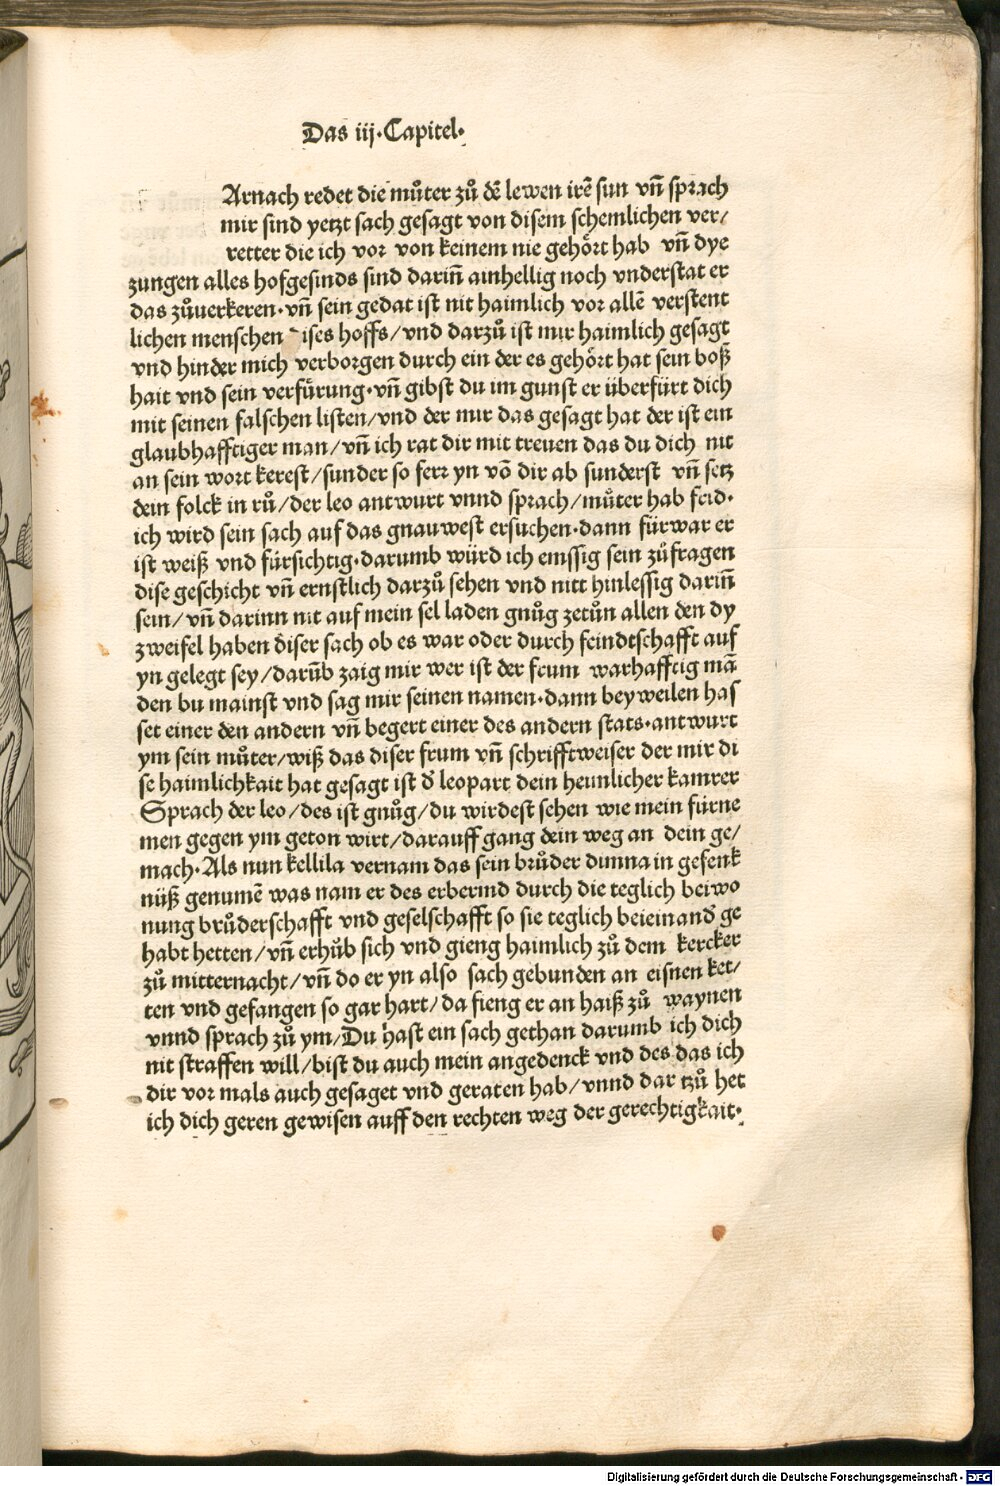 Das iij·Capitel·
Arnach redet die můter zů dē lewen irē sun vñ sprach
mir sind yetzt sach gesagt von disem schemlichen ver/
retter die ich vor von keinem nie gehört hab vñ dye
zungen alles hofgesinds sind dariñ ainhellig noch vnderstat er
das zůuerkeren·vñ sein gedat ist nit haimlich vor allē verstent
lichen menschen ises hoffs/vnd darzů ist mir haimlich gesagt
vnd hinder mich verborgen durch ein der es gehört hat sein boß
hait vnd sein verfürung·vñ gibst du im gunst er überfürt dich
mit seinen falschen listen/vnd der mir das gesagt hat der ist ein
glaubhafftiger man/vñ ich rat dir mit treuen das du dich nit
an sein wort kerest/sunder so ferr yn vō dir ab sunderst vñ setz
dein folck in rů/der leo antwurt vnnd sprach/můter hab frid·
ich wird sein sach auf das gnauwest ersuchen·dann fürwar er
ist weiß vnd fürsichtig·darumb würd ich emssig sein zůfragen
dise geschicht vñ ernstlich darzů sehen vnd nitt hinlessig dariñ
sein/vñ darinn nit auf mein sel laden gnůg zetůn allen den dy
zweifel haben diser sach ob es war oder durch feindtschafft auf
yn gelegt sey/darūb zaig mir wer ist der frum warhafftig mā
den bu mainst vnd sag mir seinen namen·dann beyweilen has
set einer den andern vñ begert einer des andern stats·antwurt
ym sein můter/wiß das diser frum vñ schrifftweiser der mir di
se haimlichkait hat gesagt ist d̄ leopart dein heimlicher kamrer
Sprach der leo/des ist gnůg/du wirdest sehen wie mein fürne
men gegen ym geton wirt/darauff gang dein weg an dein ge/
mach·Als nun kellila vernam das sein brůder dimna in gefenk
nüß genumē was nam er des erbermd durch die teglich beiwo
nung brůderschafft vnd geselschafft so sie teglich beieinand̄ ge
habt hetten/vñ erhůb sich vnd gieng haimlich zů dem kercker
zů mitternacht/vñ do er yn also sach gebunden an eisnen ket/
ten vnd gefangen so gar hart/da fieng er an haiß zů waynen
vnnd sprach zů ym/Du hast ein sach gethan darumb ich dich
nit straffen will/bist du auch mein angedenck vnd des das ich
dir vor mals auch gesaget vnd geraten hab/vnnd dar tzů het
ich dich geren gewisen auff den rechten weg der gerechtigkait·
Digitalisierung gefördert durch die Deutsche Forschungsgemeinschaft - DFG